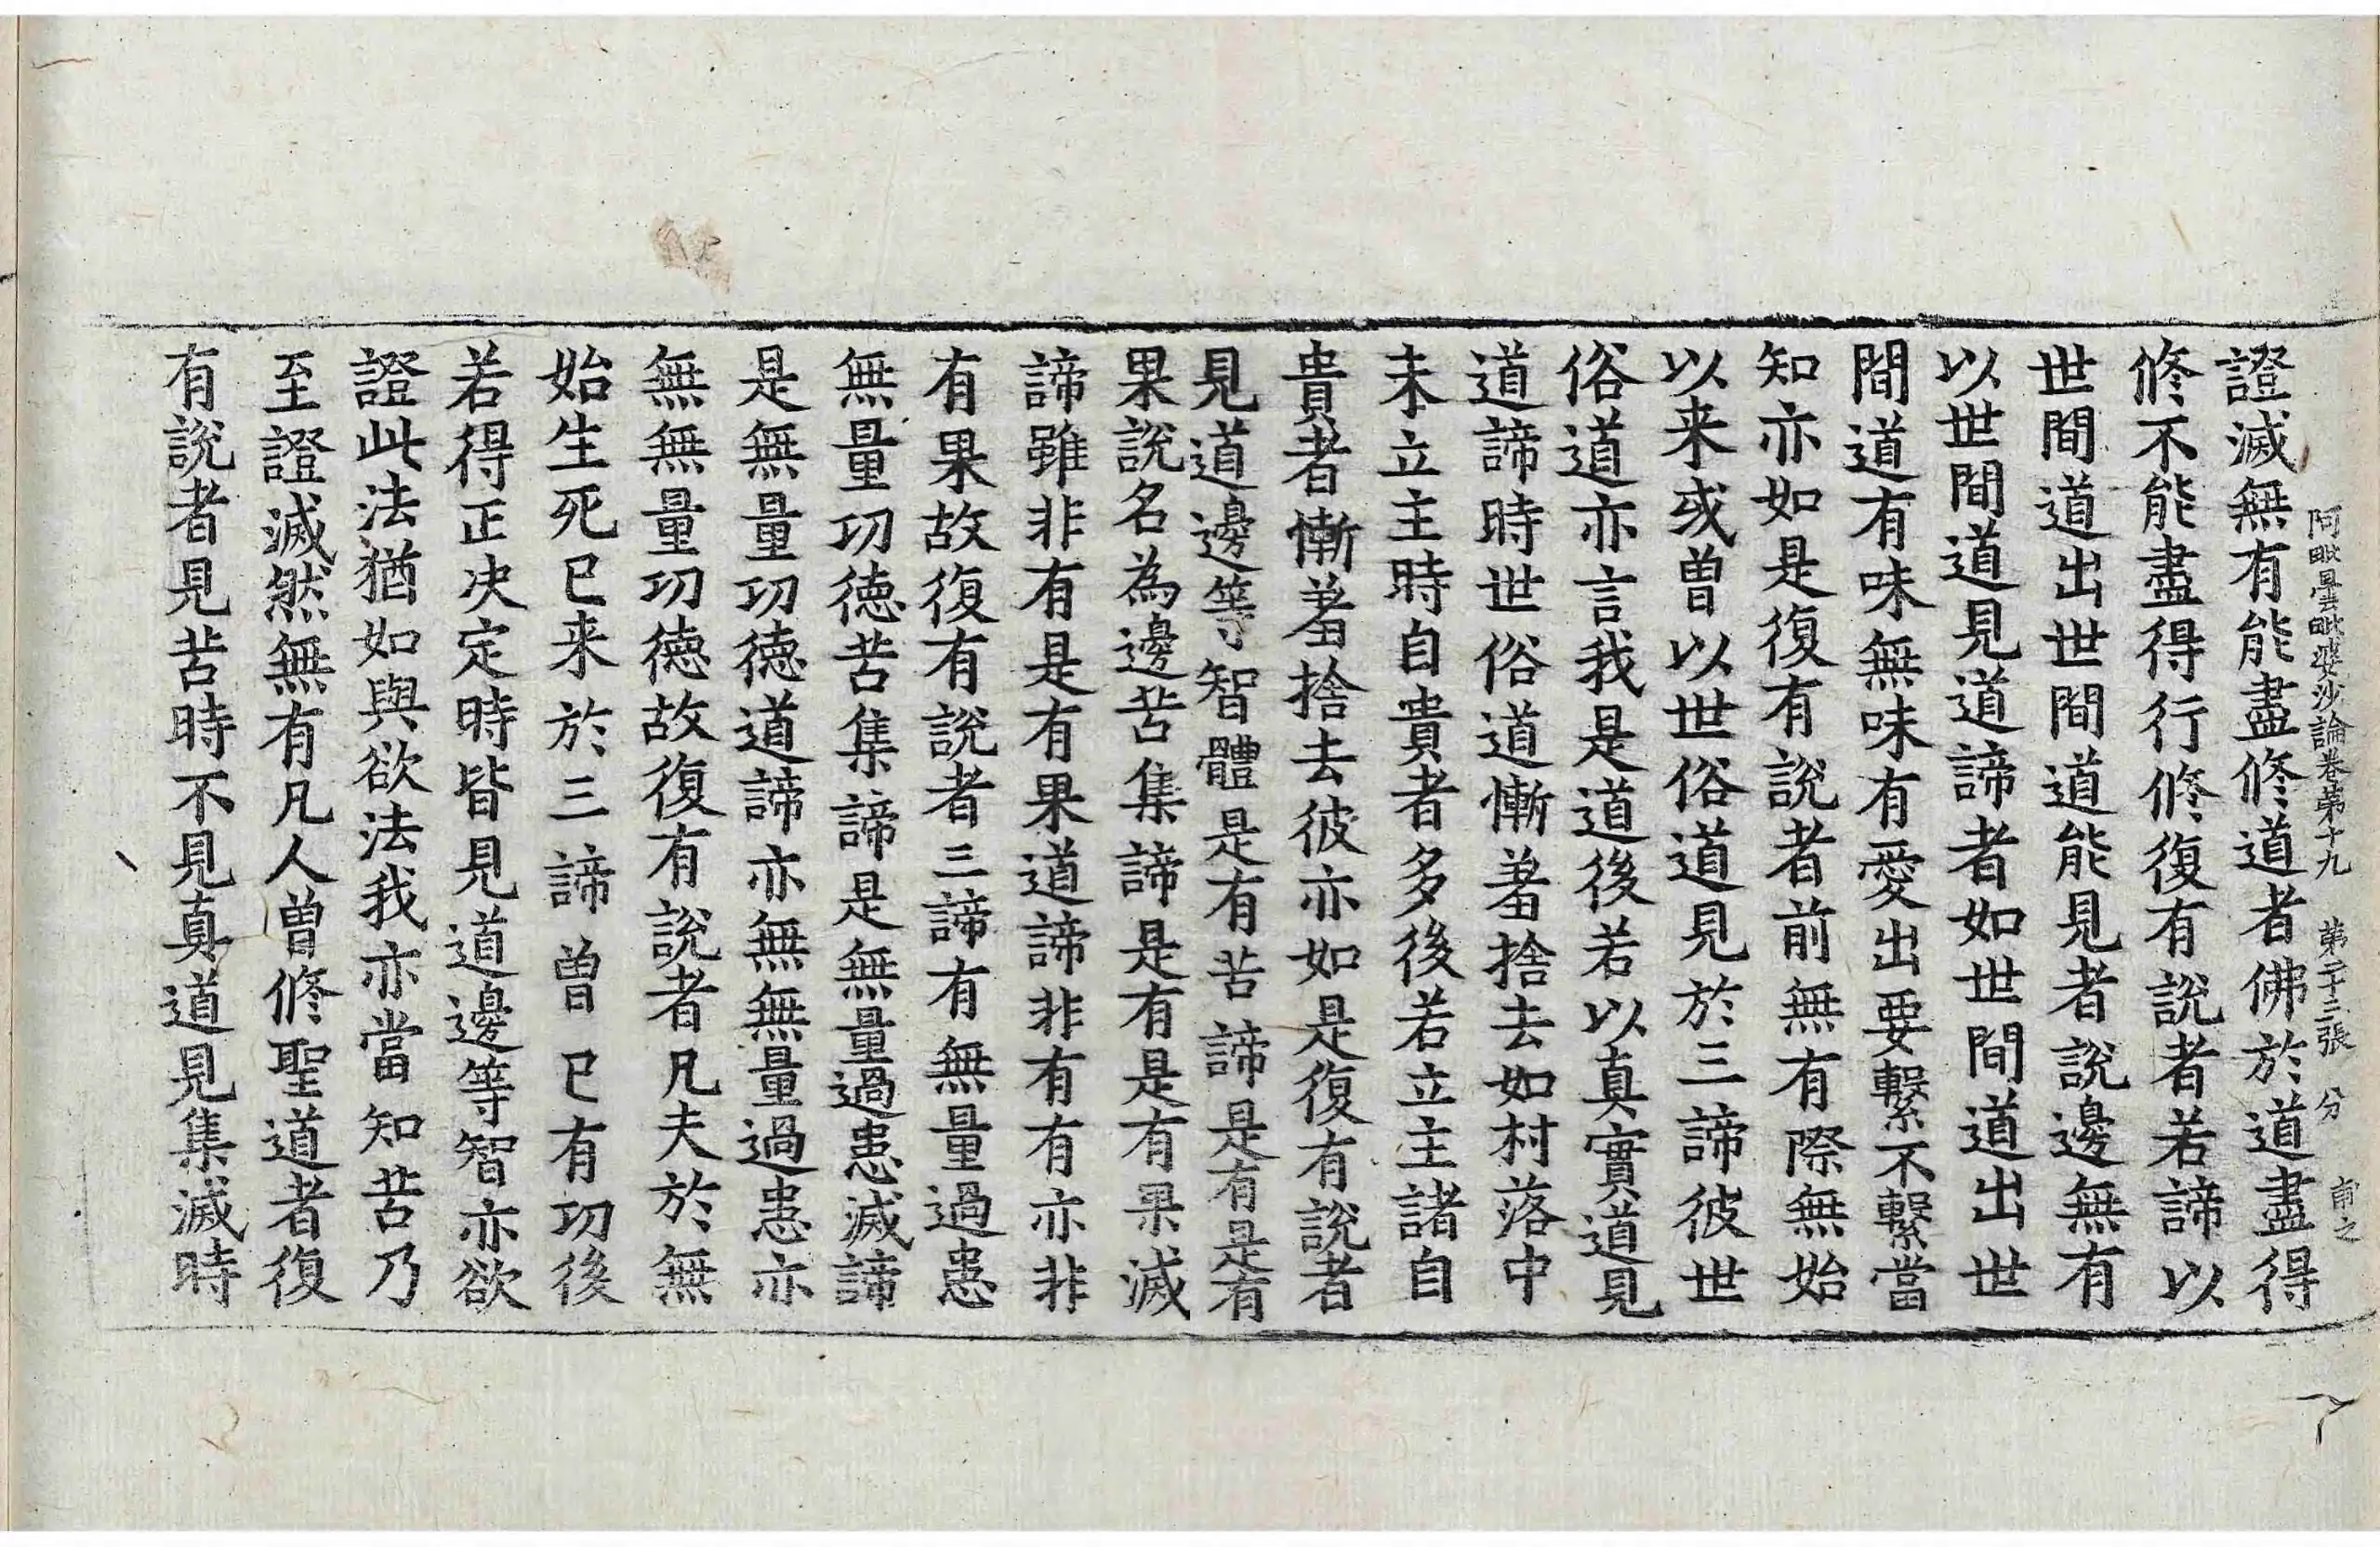 阿毗曇毗婆沙論卷第十九 第二十三張 分
證滅無有能盡修道者佛於道盡得
修不能盡得行修復有説者若諦以
世間道出世間道能見者説邊無有
以世間道見道諦者如世間道出世
間道有味無味有愛出要繫不繫當
知亦如是復有説者前無有際無始
以来或曾以世俗道見於三諦彼世
俗道亦言我是道後若以真實道見
道諦時世俗道慚羞捨去如村落中
未立主時自貴者多後若立主諸自
貴者慚羞捨去彼亦如是復有説者
見道邊等智體是有苦諦是有是有
果説名為邊苦集諦是有是有果滅
諦雖非有是有果道諦非有有亦非
有果故復有説者三諦有無量過患
無量功徳苦集諦是無量過患滅諦
是無量功徳道諦亦無無量過患亦
無無量功徳故復有説者凡夫於無
始生死已来於三諦曾已有功後
若得正决定時皆見道邊等智亦欲
證此法猶如與欲法我亦當知苦乃
至證滅然無有凡人曾修聖道者復
有説者見苦時不見真道見集滅時